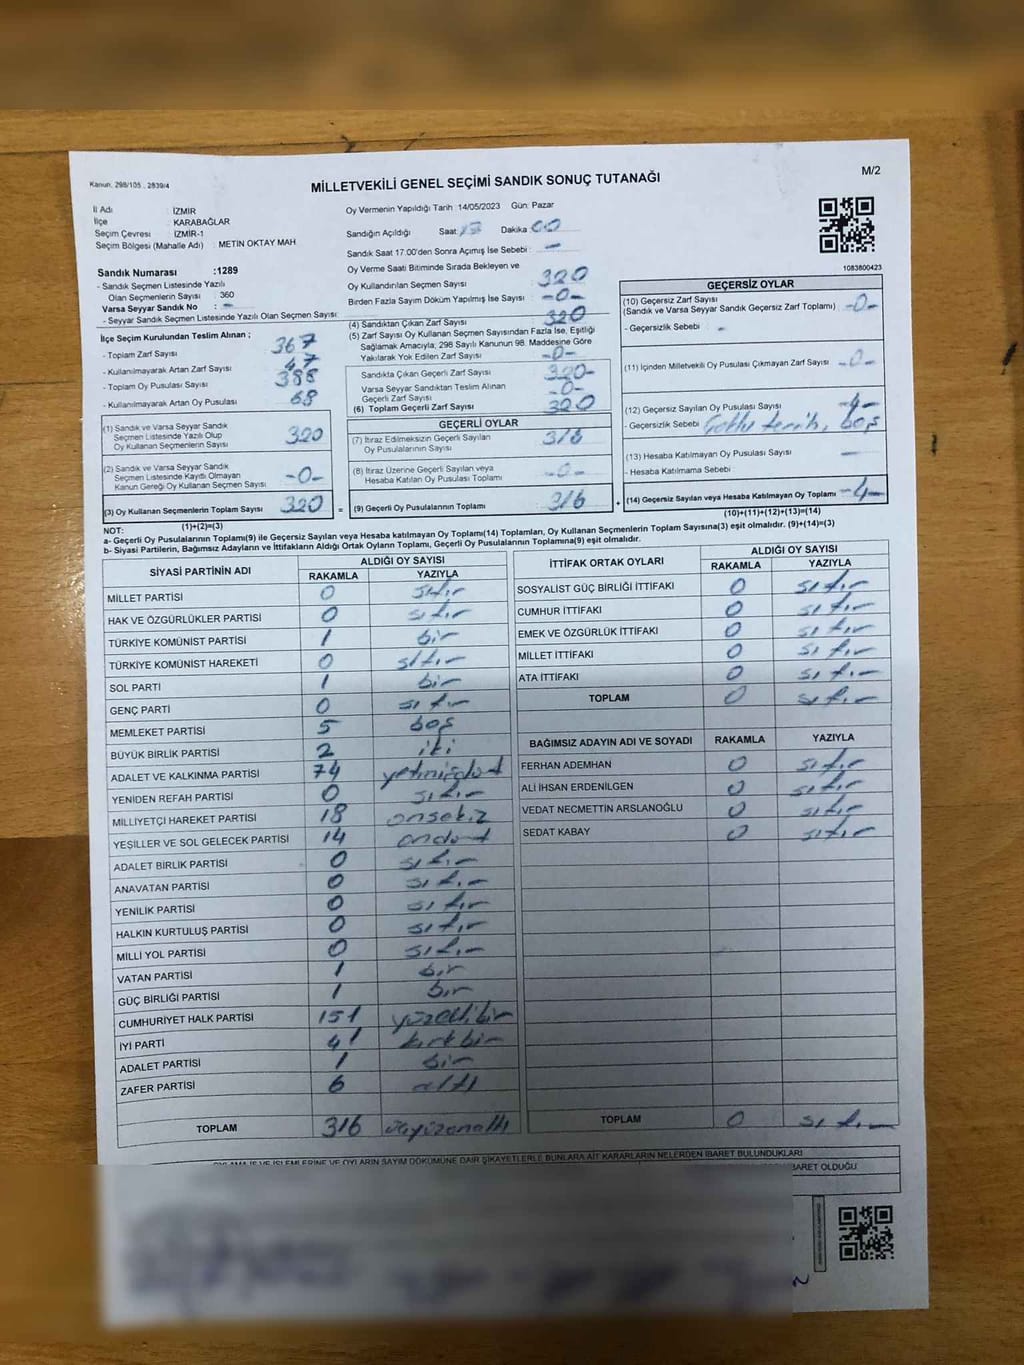 Kanun: 298/105 , 2839/4
M/2
MİLLETVEKİLİ GENEL SEÇİMİ SANDIK SONUÇ TUTANAĞI
İl Adı : İZMİR
İlçe : KARABAĞLAR
Seçim Çevresi : İZMİR-1
Seçim Bölgesi (Mahalle Adı) : METİN OKTAY MAH
Sandık Numarası :1289
- Sandık Seçmen Listesinde Yazılı
Olan Seçmenlerin Sayısı : 360
Varsa Seyyar Sandık No : -
- Seyyar Sandık Seçmen Listesinde Yazılı Olan Seçmen Sayısı :
Oy Vermenin Yapıldığı Tarih :14/05/2023 Gün: Pazar
Sandığın Açıldığı Saat: Dakika : 00
Sandık Saat 17.00'den Sonra Açılmış İse Sebebi : -
Oy Verme Saati Bitiminde Sırada Bekleyen ve
Oy Kullandırılan Seçmen Sayısı 320
Birden Fazla Sayım Döküm Yapılmış İse Sayısı -0-
1083800423
İlçe Seçim Kurulundan Teslim Alınan ;
- Toplam Zarf Sayısı 367
- Kullanılmayarak Artan Zarf Sayısı 47
- Toplam Oy Pusulası Sayısı 388
- Kullanılmayarak Artan Oy Pusulası 68
(1) Sandık ve Varsa Seyyar Sandık
Seçmen Listesinde Yazılı Olup
Oy Kullanan Seçmenlerin Sayısı 320
(2) Sandık ve Varsa Seyyar Sandık
Seçmen Listesinde Kayıtlı Olmayan
Kanun Gereği Oy Kullanan Seçmen Sayısı -0-
(3) Oy Kullanan Seçmenlerin Toplam Sayısı 320
(1)+(2)=(3)
(4) Sandıktan Çıkan Zarf Sayısı 320
(5) Zarf Sayısı Oy Kullanan Seçmen Sayısından Fazla İse, Eşitliği
Sağlamak Amacıyla, 298 Sayılı Kanunun 98. Maddesine Göre
Yakılarak Yok Edilen Zarf Sayısı -0-
Sandıkta Çıkan Geçerli Zarf Sayısı 320-
Varsa Seyyar Sandıktan Teslim Alınan
Geçerli Zarf Sayısı -0-
(6) Toplam Geçerli Zarf Sayısı 320
GEÇERLİ OYLAR
(7) İtiraz Edilmeksizin Geçerli Sayılan
Oy Pusulalarının Sayısı 316
(8) İtiraz Üzerine Geçerli Sayılan veya
Hesaba Katılan Oy Pusulası Toplamı -0-
= (9) Geçerli Oy Pusulalarının Toplamı 316 +
GEÇERSİZ OYLAR
(10) Geçersiz Zarf Sayısı
(Sandık ve Varsa Seyyar Sandık Geçersiz Zarf Toplamı) -0-
- Geçersizlik Sebebi : -
(11) İçinden Milletvekili Oy Pusulası Çıkmayan Zarf Sayısı -0-
(12) Geçersiz Sayılan Oy Pusulası Sayısı -4-
- Geçersizlik Sebebi Çoklu tercih, boş
(13) Hesaba Katılmayan Oy Pusulası Sayısı -
- Hesaba Katılmama Sebebi
(14) Geçersiz Sayılan veya Hesaba Katılmayan Oy Toplamı -4-
(10)+(11)+(12)+(13)=(14)
NOT:
a- Geçerli Oy Pusulalarının Toplamı(9) ile Geçersiz Sayılan veya Hesaba katılmayan Oy Toplamı(14) Toplamları, Oy Kullanan Seçmenlerin Toplam Sayısına(3) eşit olmalıdır. (9)+(14)=(3)
b- Siyasi Partilerin, Bağımsız Adayların ve İttifakların Aldığı Ortak Oyların Toplamı, Geçerli Oy Pusulalarının Toplamına(9) eşit olmalıdır.
SİYASİ PARTİNİN ADI ALDIĞI OY SAYISI
RAKAMLA YAZIYLA
MİLLET PARTİSİ 0 sıfır
HAK VE ÖZGÜRLÜKLER PARTİSİ 0 sıfır
TÜRKİYE KOMÜNİST PARTİSİ 1 bir
TÜRKİYE KOMÜNİST HAREKETİ 0 sıfır
SOL PARTİ 1 bir
GENÇ PARTİ 0 sıfır
MEMLEKET PARTİSİ 5 beş
BÜYÜK BİRLİK PARTİSİ 2 iki
ADALET VE KALKINMA PARTİSİ 74 yetmişdört
YENİDEN REFAH PARTİSİ 0 sıfır
MİLLİYETÇİ HAREKET PARTİSİ 18 onsekiz
YEŞİLLER VE SOL GELECEK PARTİSİ 14 ondört
ADALET BİRLİK PARTİSİ 0 sıfır
ANAVATAN PARTİSİ 0 sıfır
YENİLİK PARTİSİ 0 sıfır
HALKIN KURTULUŞ PARTİSİ 0 sıfır
MİLLİ YOL PARTİSİ 0 sıfır
VATAN PARTİSİ 1 bir
GÜÇ BİRLİĞİ PARTİSİ 1 bir
CUMHURİYET HALK PARTİSİ 151 yüzellibir
İYİ PARTİ 41 kırkbir
ADALET PARTİSİ 1 bir
ZAFER PARTİSİ 6 altı
TOPLAM 316 üçyüzonaltı
İTTİFAK ORTAK OYLARI ALDIĞI OY SAYISI
RAKAMLA YAZIYLA
SOSYALİST GÜÇ BİRLİĞİ İTTİFAKI 0 sıfır
CUMHUR İTTİFAKI 0 sıfır
EMEK VE ÖZGÜRLÜK İTTİFAKI 0 sıfır
MİLLET İTTİFAKI 0 sıfır
ATA İTTİFAKI 0 sıfır
TOPLAM 0 sıfır
BAĞIMSIZ ADAYIN ADI VE SOYADI RAKAMLA YAZIYLA
FERHAN ADEMHAN 0 sıfır
ALİ İHSAN ERDENİLGEN 0 sıfır
VEDAT NECMETTİN ARSLANOĞLU 0 sıfır
SEDAT KABAY 0 sıfır
TOPLAM 0 sıfır
OYLAMA İŞ VE İŞLEMLERİNE VE OYLARIN SAYIM DÖKÜMÜNE DAİR ŞİKAYETLERLE BUNLARA AİT KARARLARIN NELERDEN İBARET BULUNDUKLARI
İBARET OLDUĞU